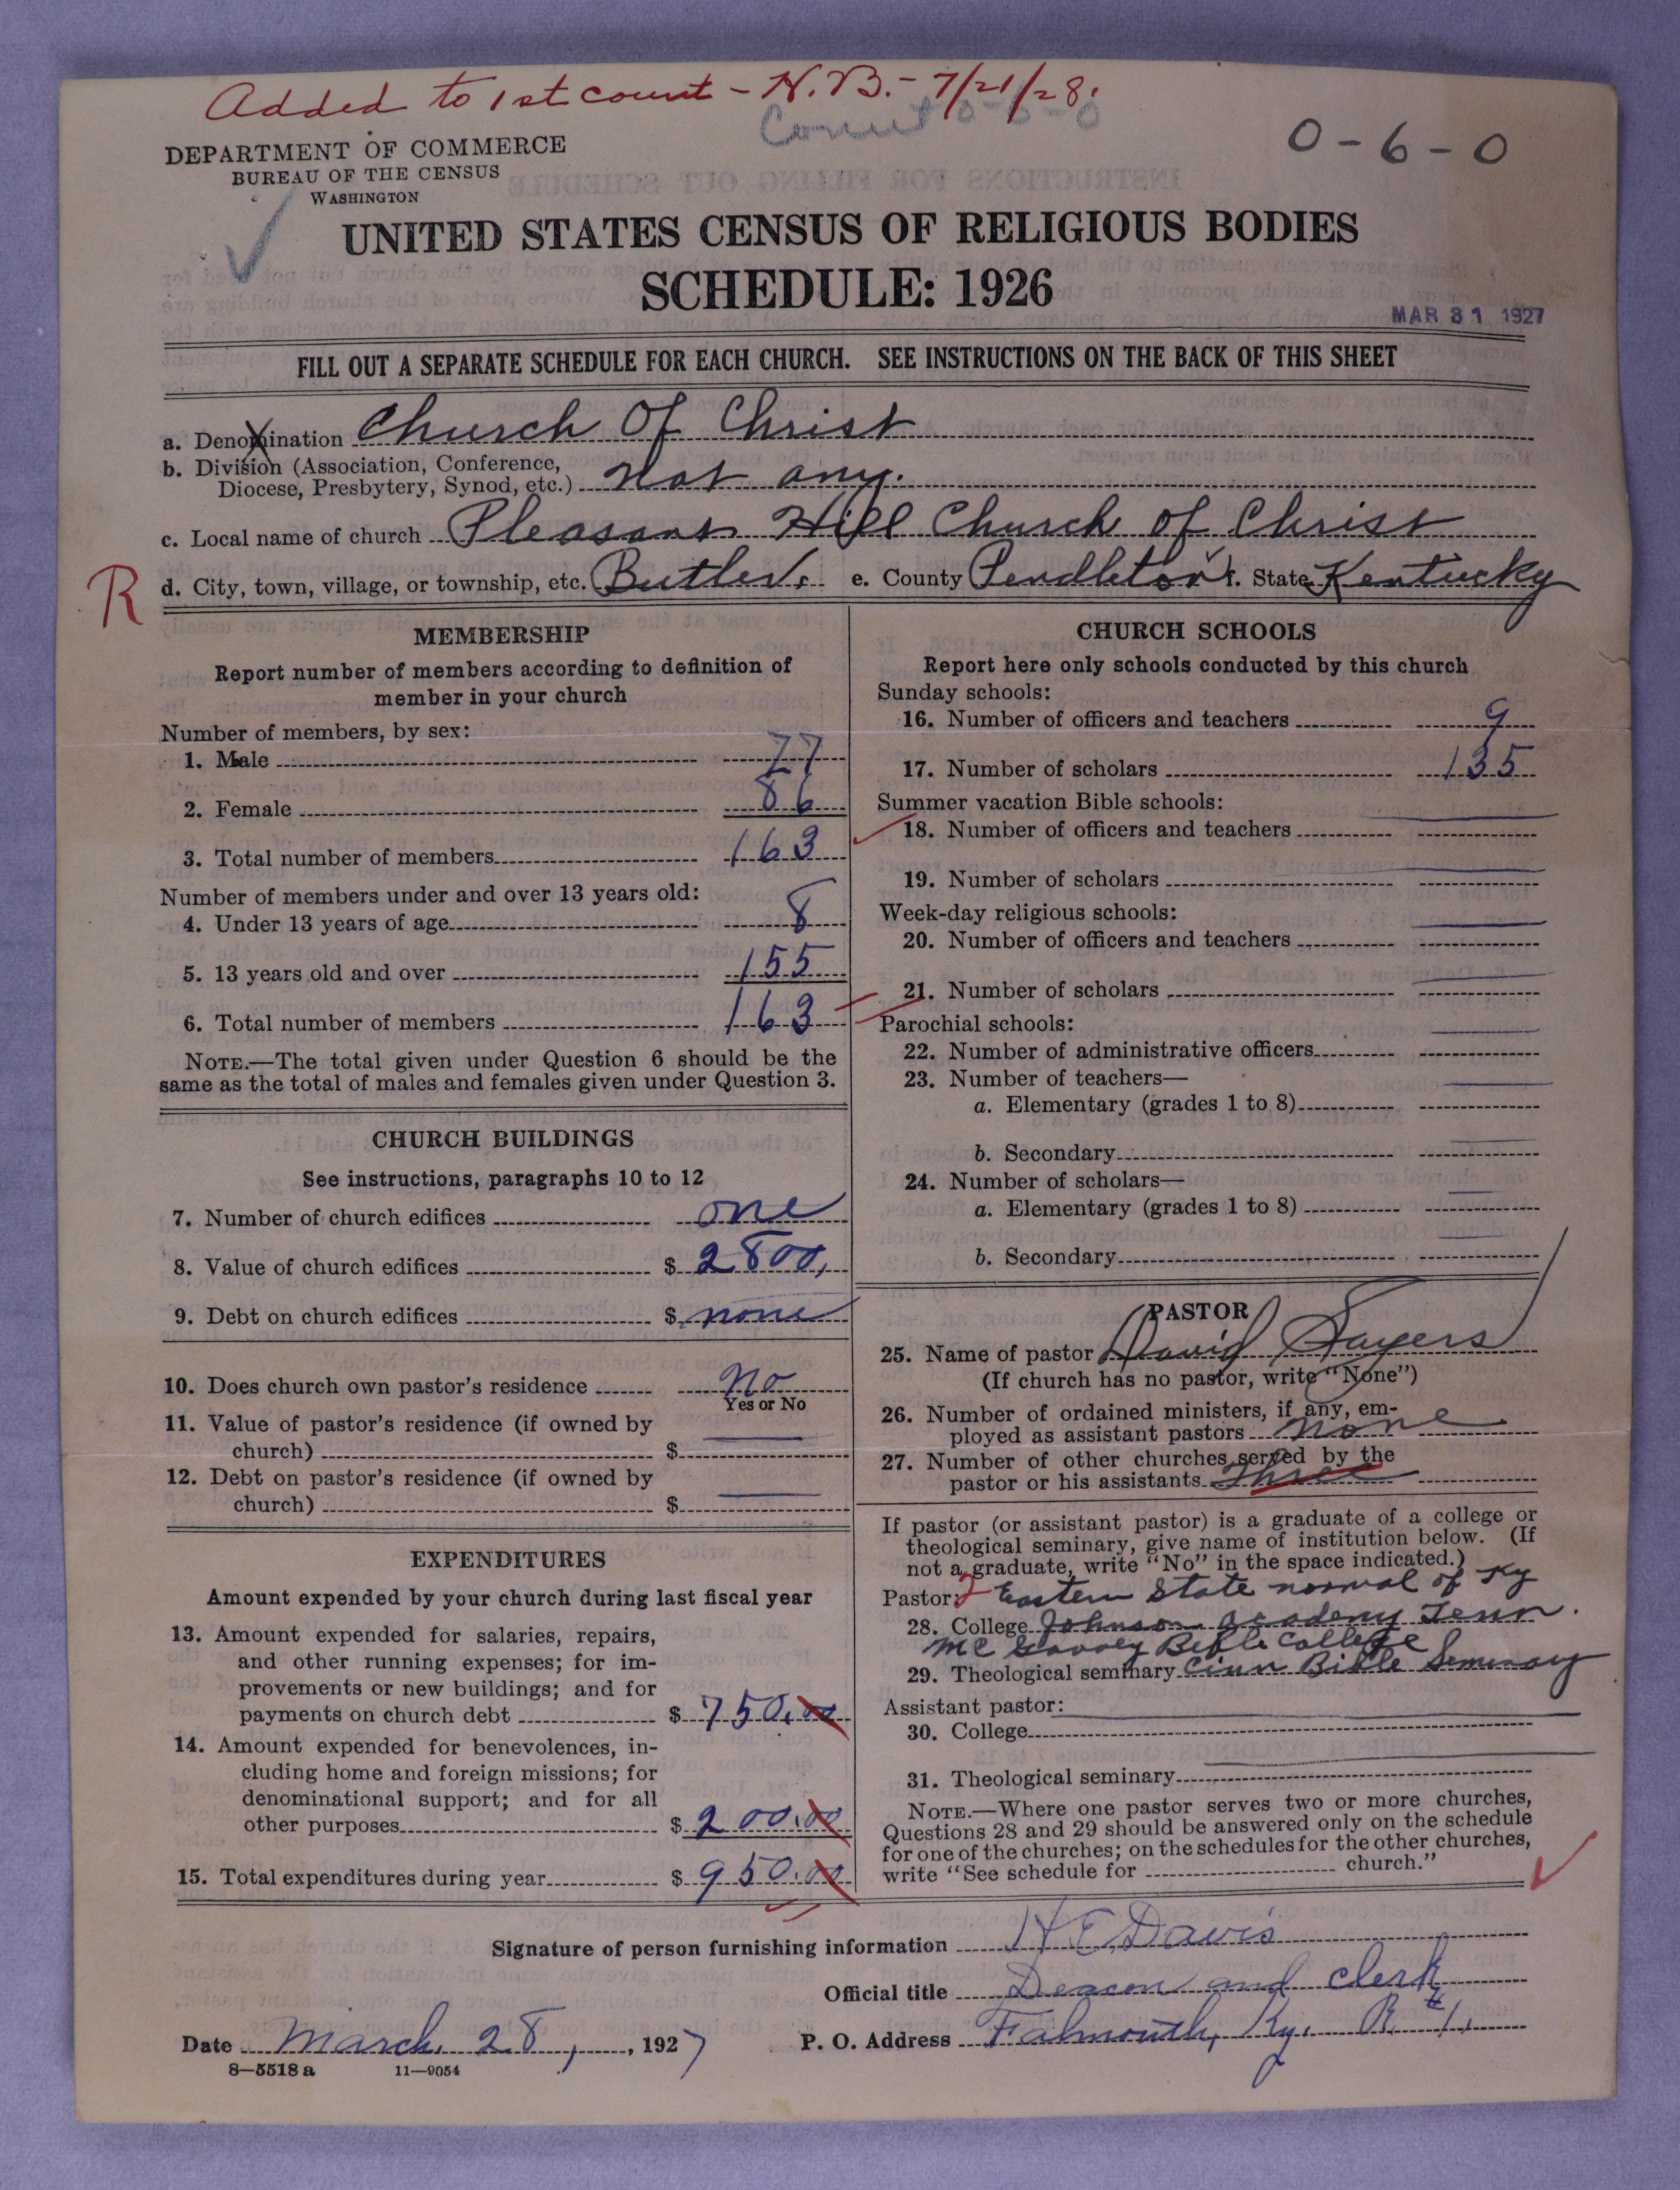 Added to 1st count - N.B. - 7/21/28.
Count 0-6-0
0-6-0
DEPARTMENT OF COMMERCE
BUREAU OF THE CENSUS
WASHINGTON
UNITED STATES CENSUS OF RELIGIOUS BODIES
SCHEDULE: 1926
MAR 31 1927
FILL OUT A SEPARATE SCHEDULE FOR EACH CHURCH. SEE INSTRUCTIONS ON THE BACK OF THIS SHEET
a. Denomination Church Of Christ
b. Division (Association, Conference,
Diocese, Presbytery, Synod, etc.) not any.
c. Local name of church Pleasant Hill Church of Christ
R
d. City, town, village, or township, etc. Butler. e. County Pendleton f. State Kentucky
MEMBERSHIP
Report number of members according to definition of
member in your church
Number of members, by sex:
1. Male 77
2. Female 86
3. Total number of members 163
Number of members under and over 13 years old:
4. Under 13 years of age 8
5. 13 years old and over 155
6. Total number of members 163
NOTE.—The total given under Question 6 should be the
same as the total of males and females given under Question 3.
CHURCH BUILDINGS
See instructions, paragraphs 10 to 12
7. Number of church edifices one
8. Value of church edifices $ 2800,
9. Debt on church edifices $ none
10. Does church own pastor's residence No
Yes or No
11. Value of pastor's residence (if owned by
church) $
12. Debt on pastor's residence (if owned by
church) $
EXPENDITURES
Amount expended by your church during last fiscal year
13. Amount expended for salaries, repairs,
and other running expenses; for im-
provements or new buildings; and for
payments on church debt $ 750.00
14. Amount expended for benevolences, in-
cluding home and foreign missions; for
denominational support; and for all
other purposes $ 200.00
15. Total expenditures during year $ 950.00
CHURCH SCHOOLS
Report here only schools conducted by this church
Sunday schools:
16. Number of officers and teachers 9
17. Number of scholars 135
Summer vacation Bible schools:
18. Number of officers and teachers
19. Number of scholars
Week-day religious schools:
20. Number of officers and teachers
21. Number of scholars
Parochial schools:
22. Number of administrative officers
23. Number of teachers—
a. Elementary (grades 1 to 8)
b. Secondary
24. Number of scholars—
a. Elementary (grades 1 to 8)
b. Secondary
PASTOR
25. Name of pastor David Sayers
(If church has no pastor, write "None")
26. Number of ordained ministers, if any, em-
ployed as assistant pastors none
27. Number of other churches served by the
pastor or his assistants Three
If pastor (or assistant pastor) is a graduate of a college or
theological seminary, give name of institution below. (If
not a graduate, write "No" in the space indicated.)
Pastor: Eastern State normal of Ky
28. College Johnson academy Tenn.
Mc Bible College
29. Theological seminary Cinn Bible Seminary
Assistant pastor:
30. College
31. Theological seminary
NOTE.—Where one pastor serves two or more churches,
Questions 28 and 29 should be answered only on the schedule
for one of the churches; on the schedules for the other churches,
write "See schedule for church."
Signature of person furnishing information H E Davis
Official title Deacon and clerk
Date March, 28, 1927 P. O. Address Falmouth, Ky. R #1.
8—5518 a 11—9054